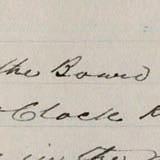 the Board
Clock
in the